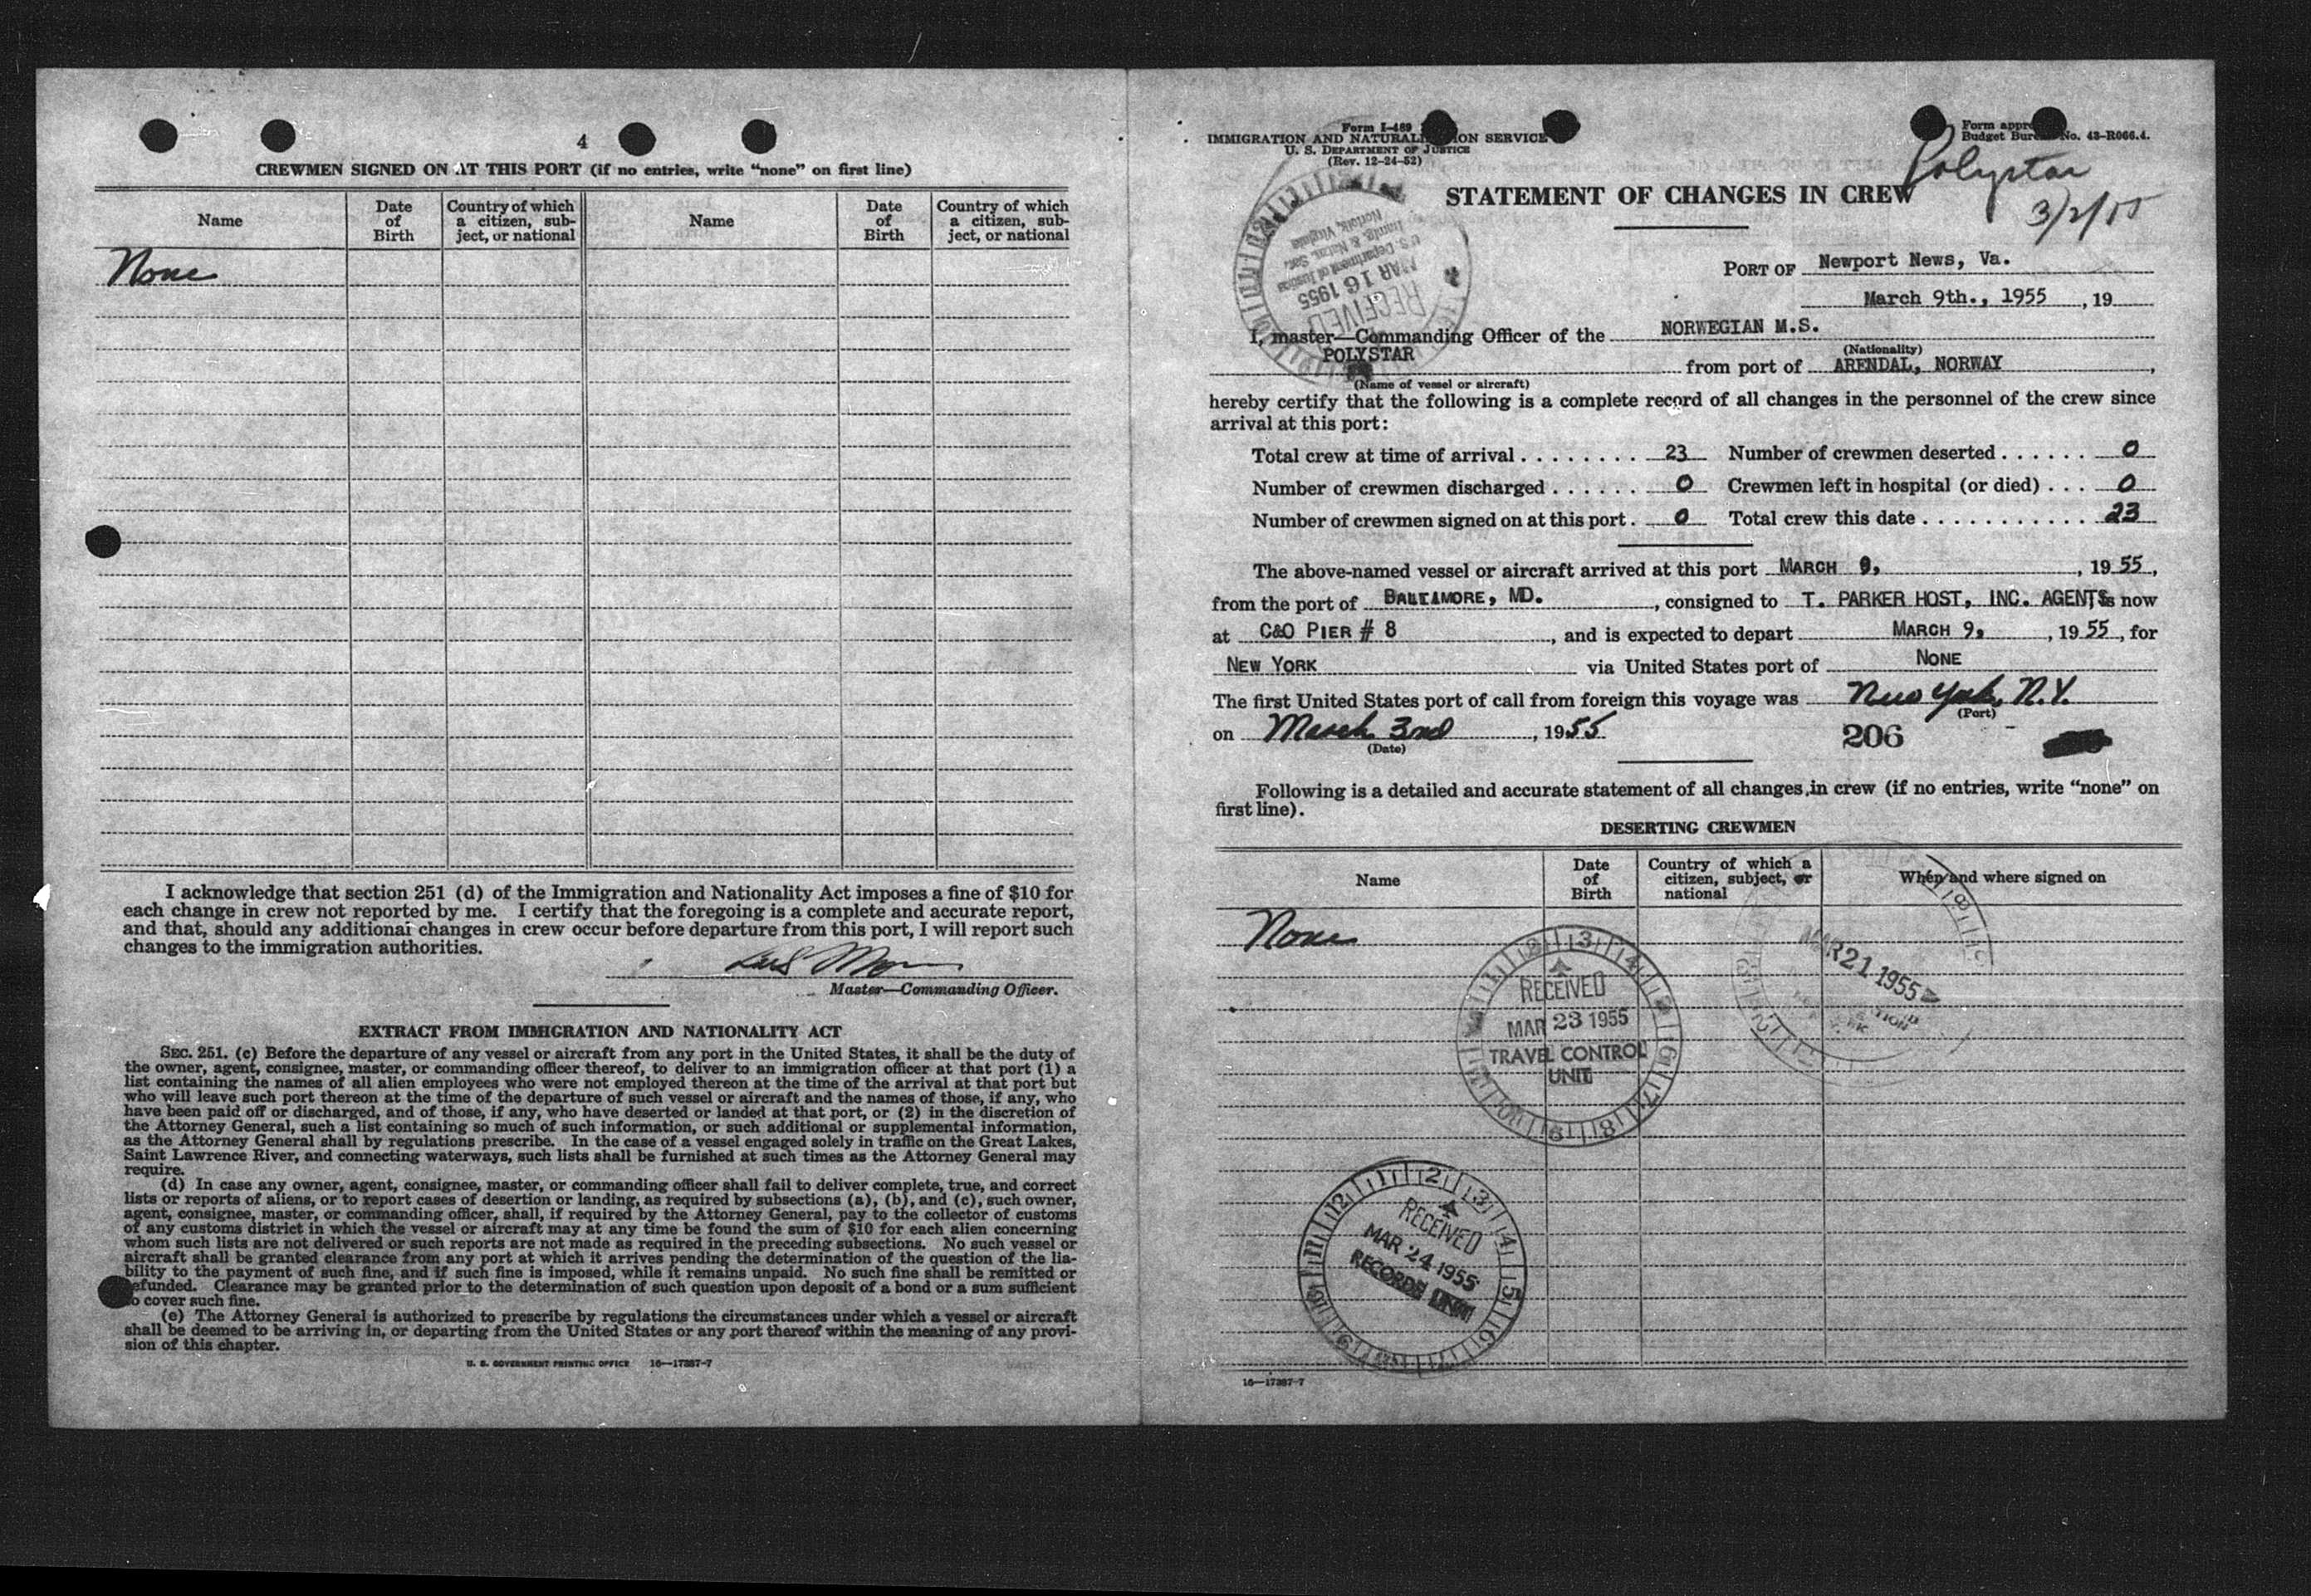 4
CREWMEN SIGNED ON AT THIS PORT (if no entries, write “none” on first line)
Name
Date of Birth
Country of which a citizen, subject, or national
Name
Date of Birth
Country of which a citizen, subject, or national
None
I acknowledge that section 251 (d) of the Immigration and Nationality Act imposes a fine of $10 for
each change in crew not reported by me. I certify that the foregoing is a complete and accurate report,
and that, should any additional changes in crew occur before departure from this port, I will report such
changes to the immigration authorities.
Master—Commanding Officer.
EXTRACT FROM IMMIGRATION AND NATIONALITY ACT
SEC. 251. (c) Before the departure of any vessel or aircraft from any port in the United States, it shall be the duty of
the owner, agent, consignee, master, or commanding officer thereof, to deliver to an immigration officer at that port (1) a
list containing the names of all alien employees who were not employed thereon at the time of the arrival at that port but
who will leave such port thereon at the time of the departure of such vessel or aircraft and the names of those, if any, who
have been paid off or discharged, and of those, if any, who have deserted or landed at that port, or (2) in the discretion of
the Attorney General, such a list containing so much of such information, or such additional or supplemental information,
as the Attorney General shall by regulations prescribe. In the case of a vessel engaged solely in traffic on the Great Lakes,
Saint Lawrence River, and connecting waterways, such lists shall be furnished at such times as the Attorney General may
require.
(d) In case any owner, agent, consignee, master, or commanding officer shall fail to deliver complete, true, and correct
lists or reports of aliens, or to report cases of desertion or landing, as required by subsections (a), (b), and (c), such owner,
agent, consignee, master, or commanding officer, shall, if required by the Attorney General, pay to the collector of customs
of any customs district in which the vessel or aircraft may at any time be found the sum of $10 for each alien concerning
whom such lists are not delivered or such reports are not made as required in the preceding subsections. No such vessel or
aircraft shall be granted clearance from any port at which it arrives pending the determination of the question of the lia-
bility to the payment of such fine, and if such fine is imposed, while it remains unpaid. No such fine shall be remitted or
refunded. Clearance may be granted prior to the determination of such question upon deposit of a bond or a sum sufficient
to cover such fine.
(e) The Attorney General is authorized to prescribe by regulations the circumstances under which a vessel or aircraft
shall be deemed to be arriving in, or departing from the United States or any port thereof within the meaning of any provi-
sion of this chapter.
U. S. GOVERNMENT PRINTING OFFICE 16—17387-7
Form I-489
IMMIGRATION AND NATURALIZATION SERVICE
U. S. DEPARTMENT OF JUSTICE
(Rev. 12-24-52)
Form approved
Budget Bureau No. 43-R066.4.
Polystar
3/2/55
STATEMENT OF CHANGES IN CREW
RECEIVED
MAR 16 1955
U.S. Department of Justice
Immig. & Natzn. Ser.
Norfolk, Virginia
PORT OF Newport News, Va.
March 9th., 1955, 19
I, master—Commanding Officer of the NORWEGIAN M.S.
(Nationality)
POLYSTAR from port of ARENDAL, NORWAY,
(Name of vessel or aircraft)
hereby certify that the following is a complete record of all changes in the personnel of the crew since
arrival at this port:
Total crew at time of arrival ........ 23 Number of crewmen deserted ...... 0
Number of crewmen discharged ...... 0 Crewmen left in hospital (or died) ... 0
Number of crewmen signed on at this port . 0 Total crew this date ............ 23
The above-named vessel or aircraft arrived at this port MARCH 9, , 1955,
from the port of BALTIMORE, MD. , consigned to T. PARKER HOST, INC. AGENTS is now
at C&O PIER # 8 , and is expected to depart MARCH 9, , 1955, for
NEW YORK via United States port of NONE
The first United States port of call from foreign this voyage was New York, N.Y.
(Port)
on March 3nd , 1955
(Date)
206
Following is a detailed and accurate statement of all changes in crew (if no entries, write “none” on
first line).
DESERTING CREWMEN
Name
Date of Birth
Country of which a citizen, subject, or national
When and where signed on
None
MAR 21 1955
RECEIVED
MAR 23 1955
TRAVEL CONTROL
UNIT
RECEIVED
MAR 24 1955
RECORDS UNIT
16—17387-7